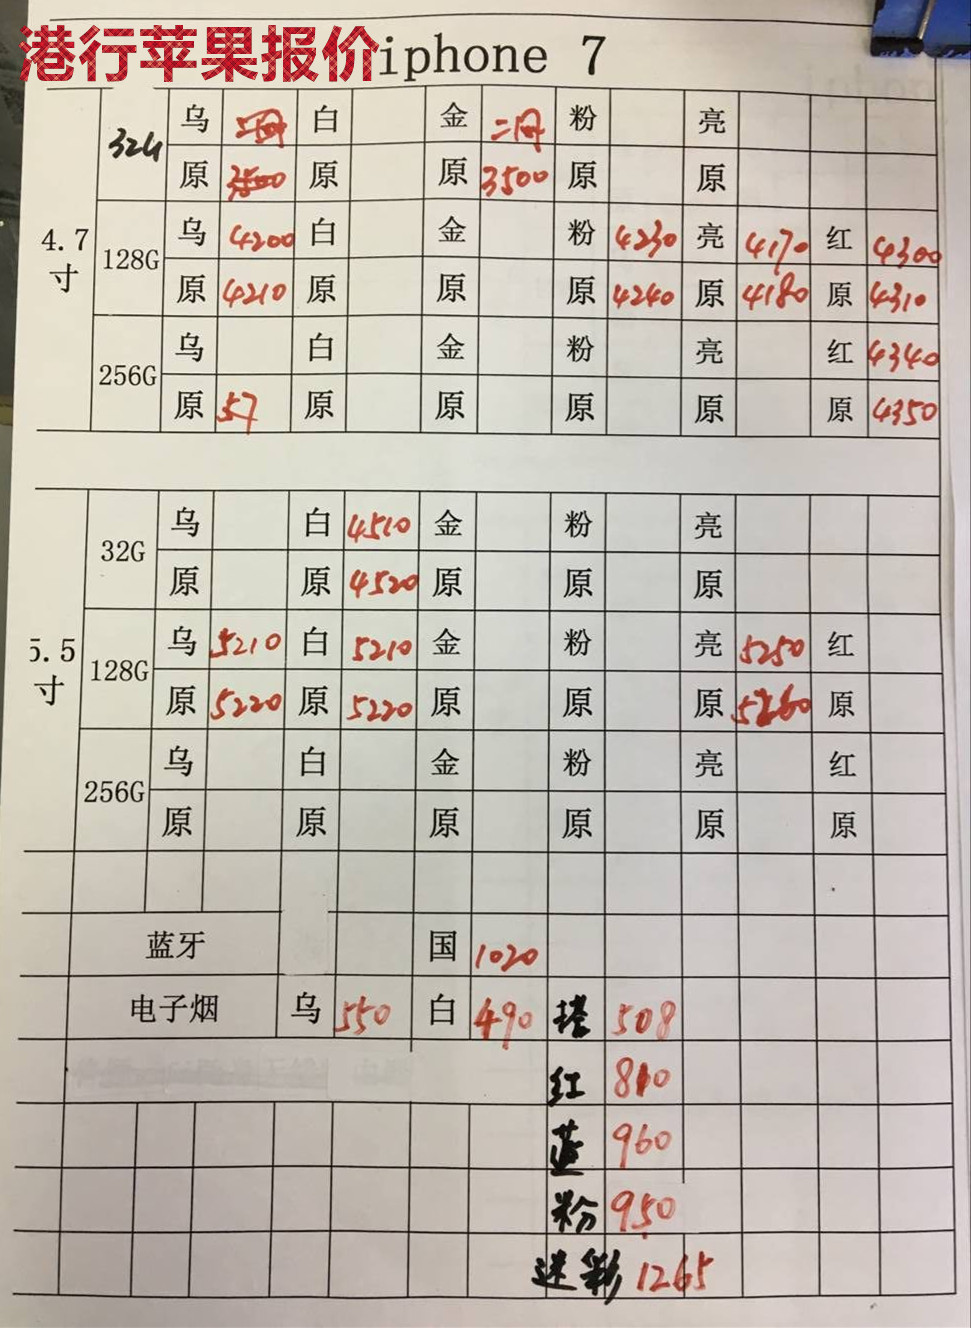 港行苹果报价iphone 7
乌 白 金 二网 粉 亮
32G
原 原 原 3500 原 原
4.7寸
128G
乌 4200 白 金 粉 4230 亮 4170 红 4300
原 4210 原 原 原 4240 原 4180 原 4310
256G
乌 白 金 粉 亮 红 4340
原 57 原 原 原 原 原 4350
5.5寸
32G
乌 白 4510 金 粉 亮
原 原 4520 原 原 原
128G
乌 5210 白 5210 金 粉 亮 5250 红
原 5220 原 5220 原 原 原 5260 原
256G
乌 白 金 粉 亮 红
原 原 原 原 原 原
蓝牙 国 1020
电子烟 乌 550 白 490 塔 508
红 810
蓝 960
粉 950
迷彩 1265